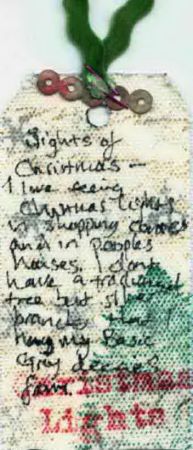 Sights of
Christmas —
I love seeing
Christmas Lights
in shopping centres
and in peoples
houses. I dont
have a traditional
tree but silver
branches that
hang my Basic
Grey decies
from.
Christmas
Lights